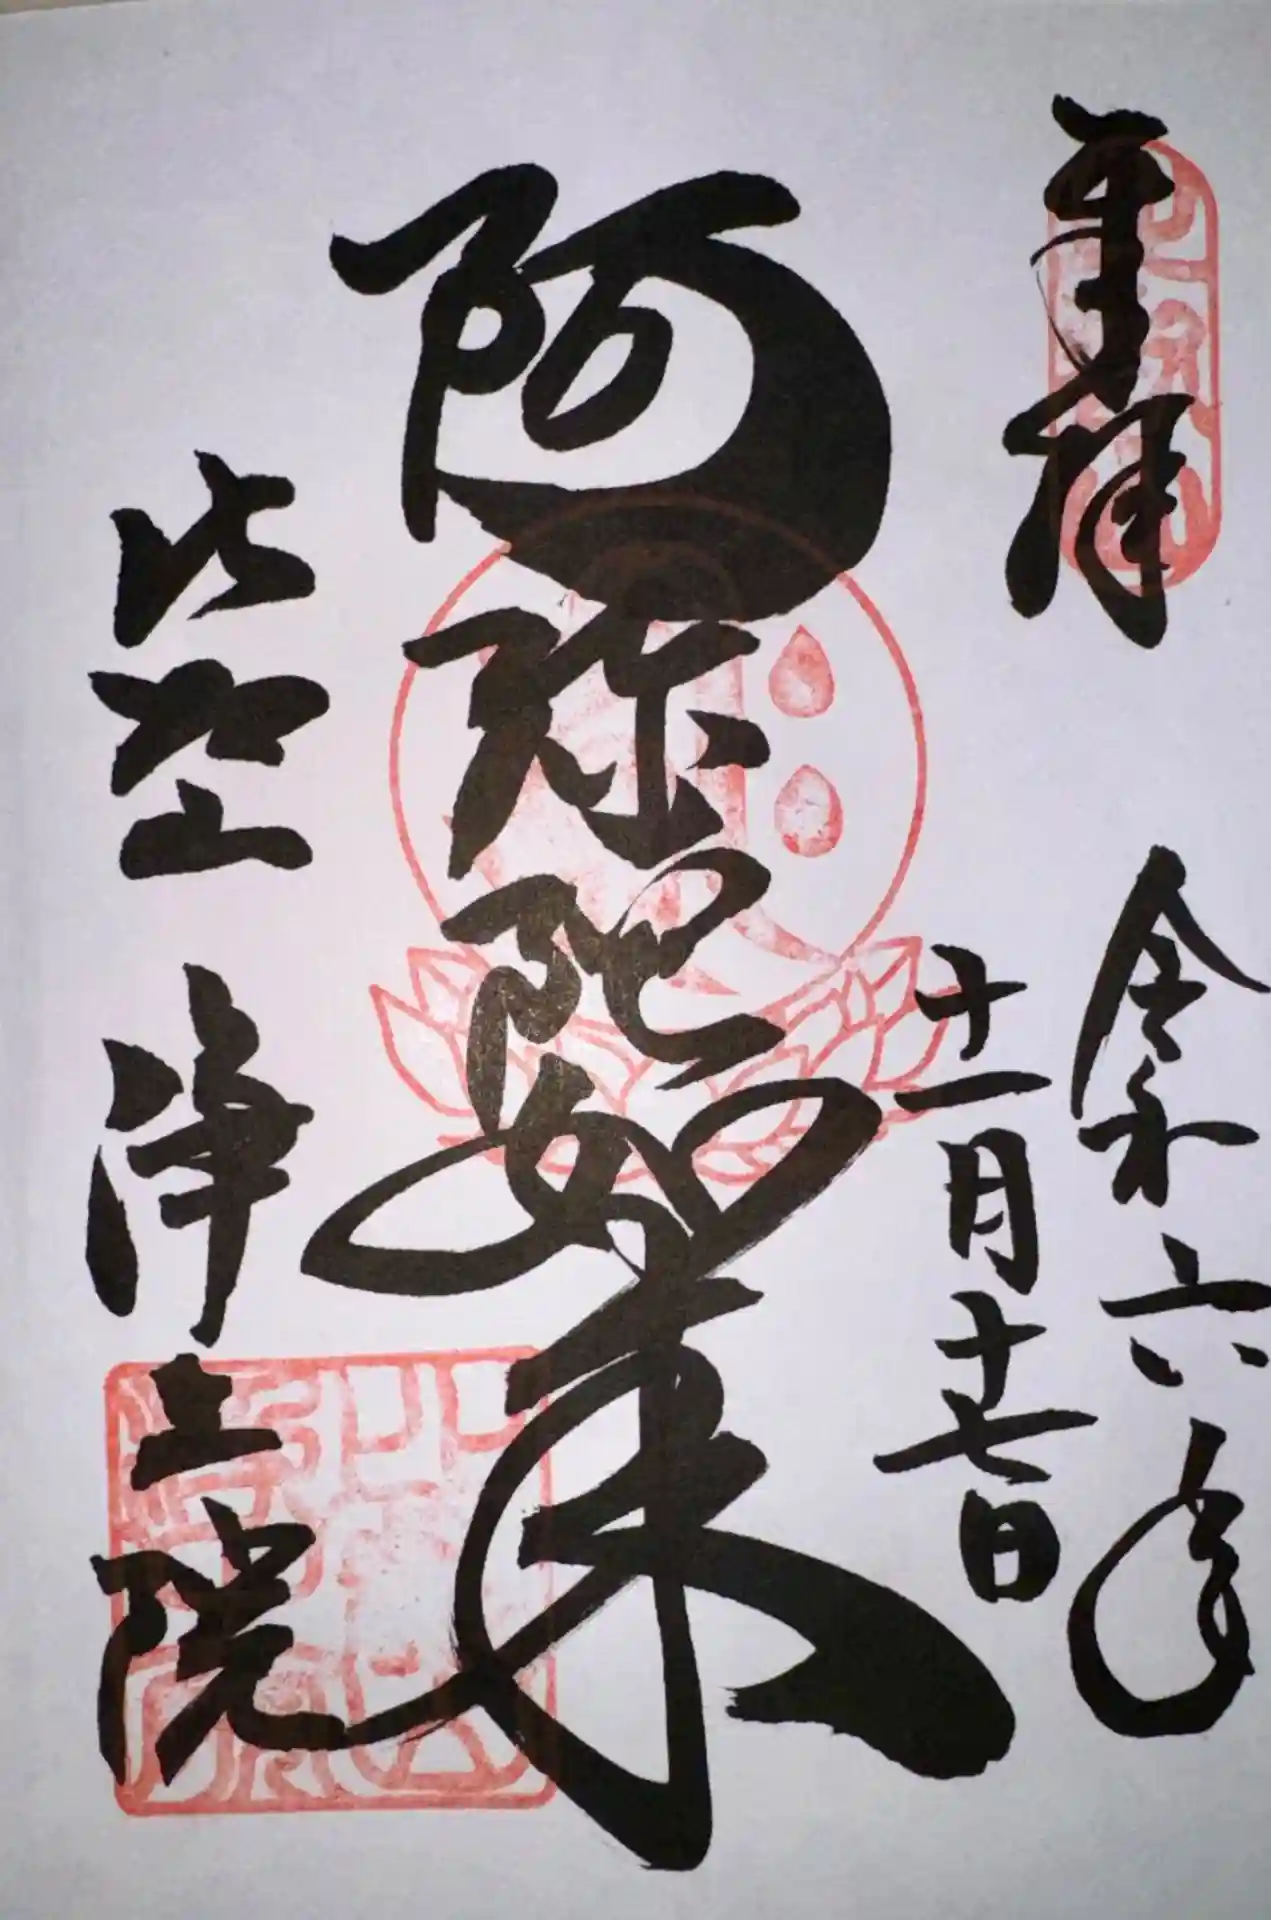 奉拝
令和六年
十一月十七日
阿弥陀如来
比叡山 浄土院